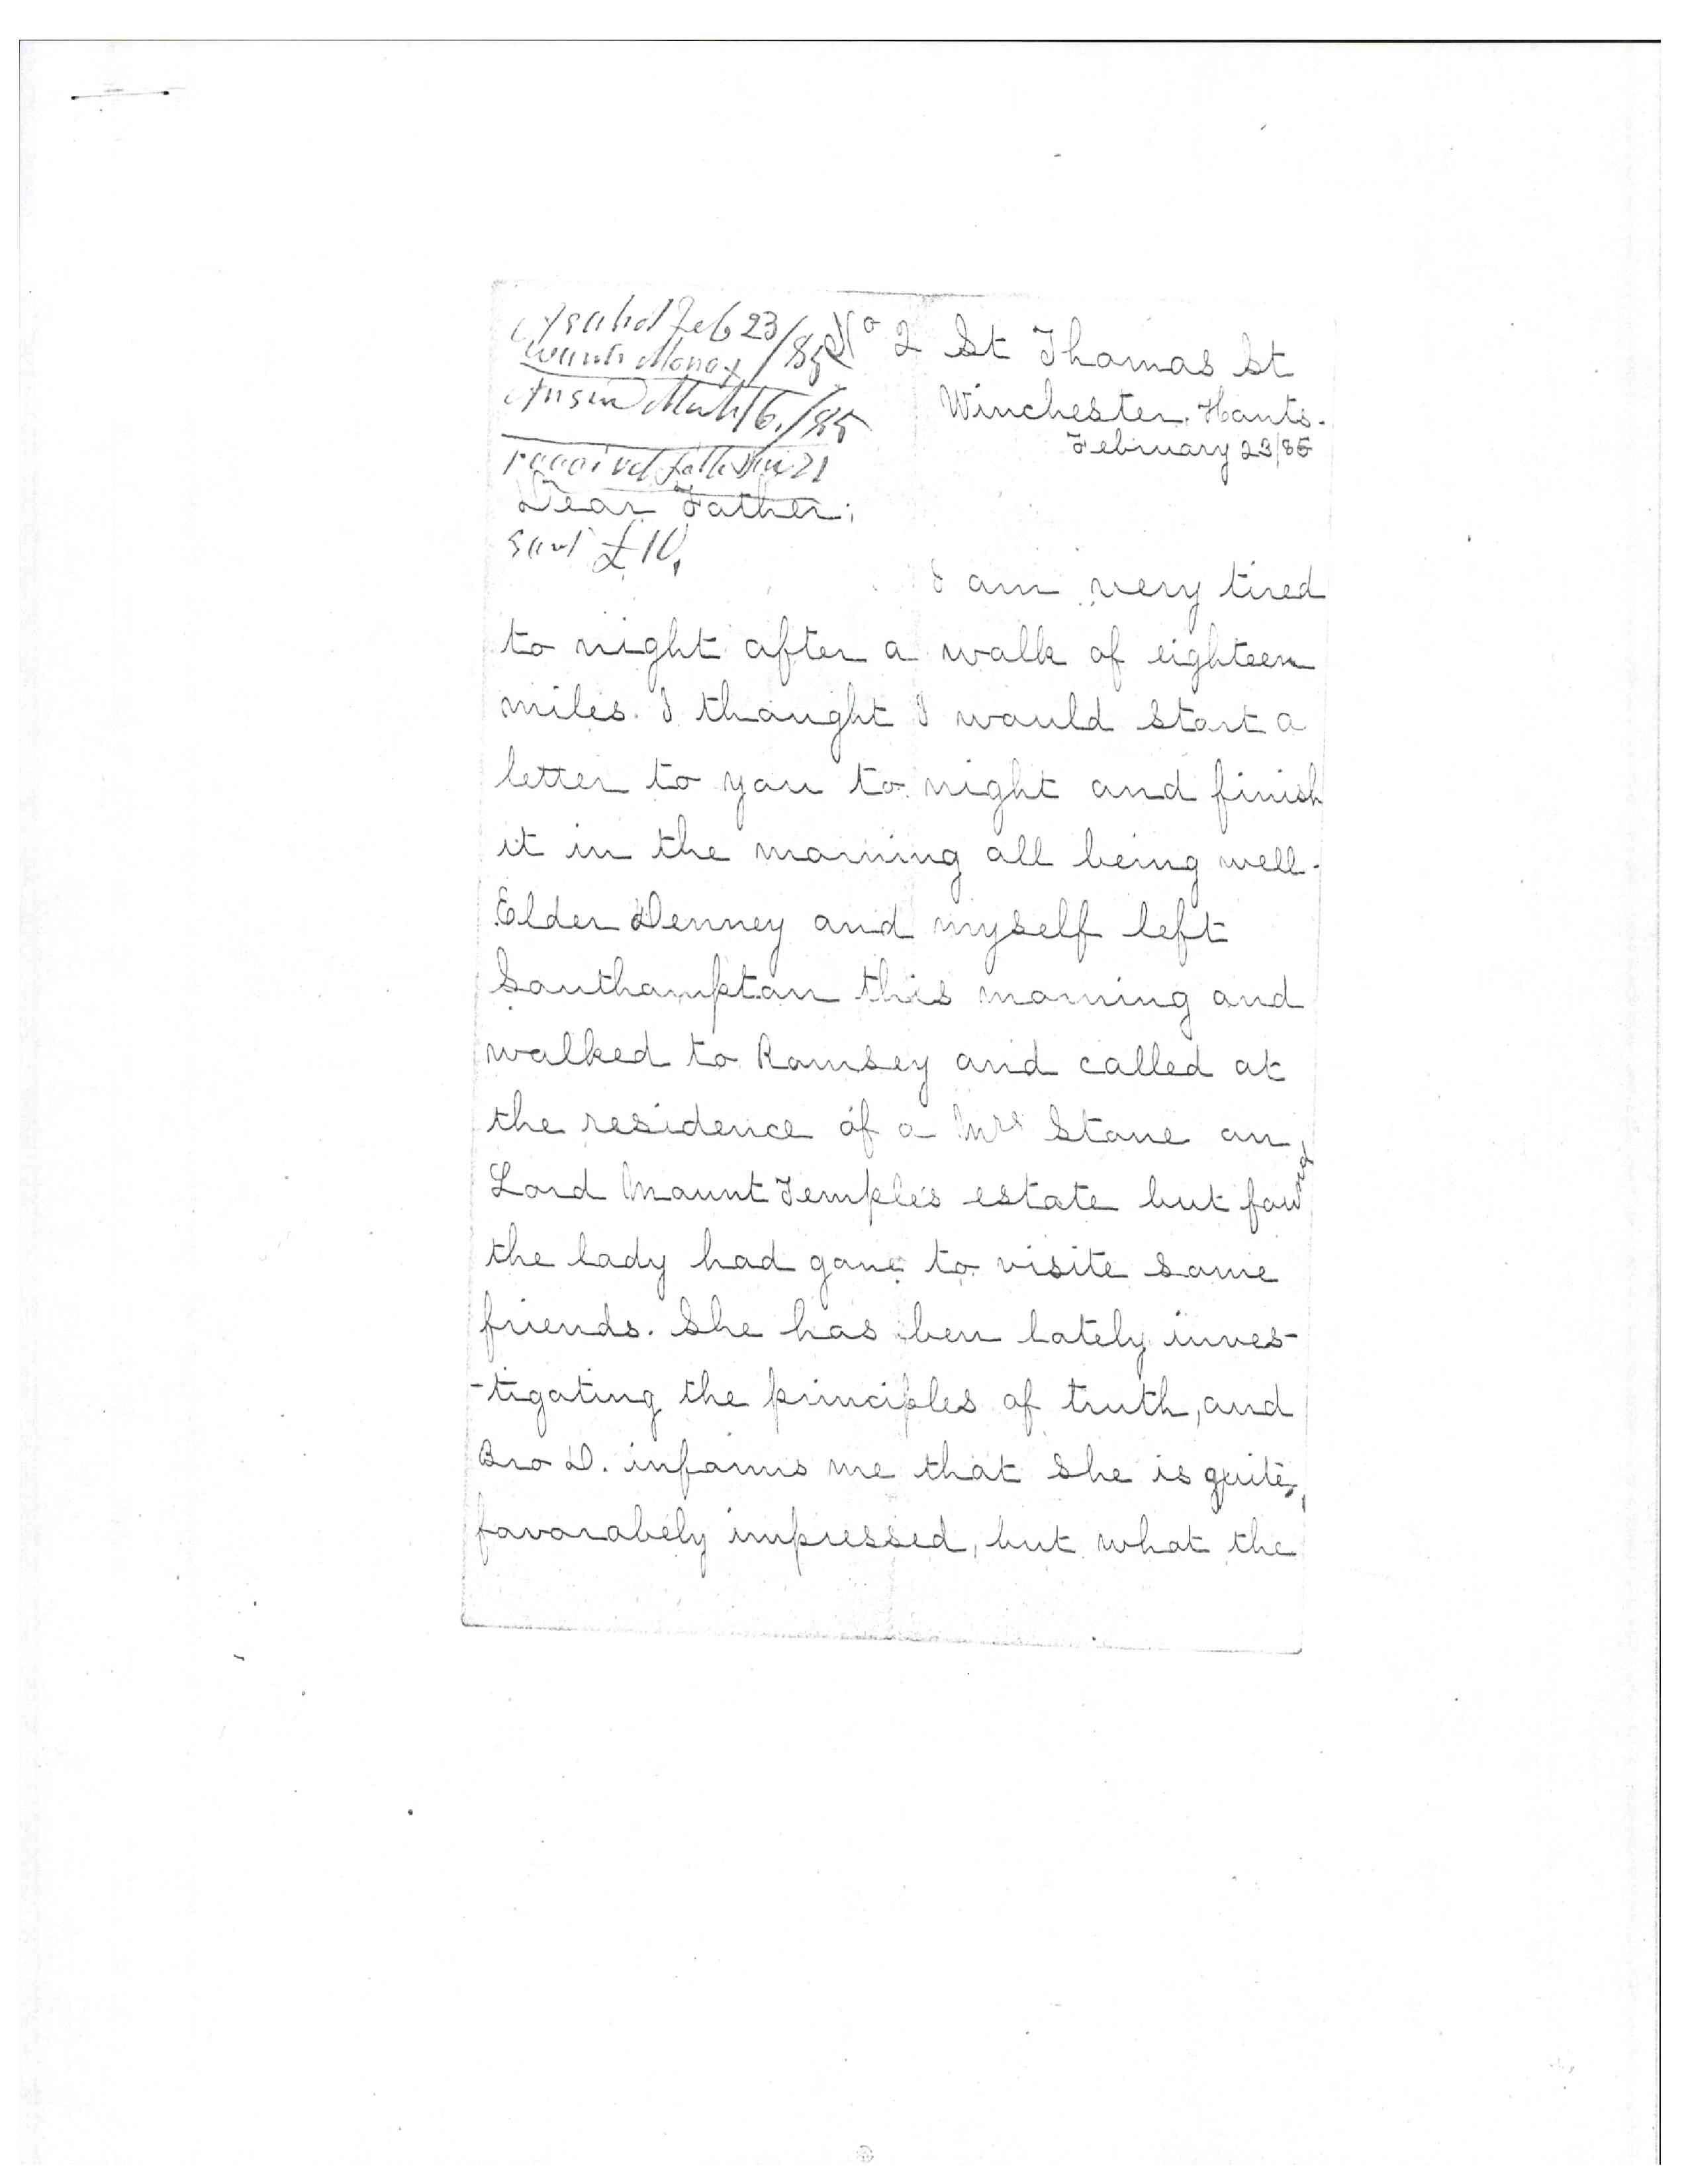 Feb 23/85
wants Money
Answd March 6/85
received letter 21
No 2 St Thomas St
Winchester, Hants.
February 23/85
Dear Father;
sent £10.
I am very tired
to night after a walk of eighteen
miles. I thought I would start a
letter to you to night and finish
it in the morning all being well.
Elder Denney and myself left
Southampton this morning and
walked to Romsey and called at
the residence of a Mrs Stone on
Lord Mount Temple's estate but found
the lady had gone to visite some
friends. She has ben lately inves-
-tigating the principles of truth, and
Bro D. informs me that she is quite
favorabely impressed, but what the